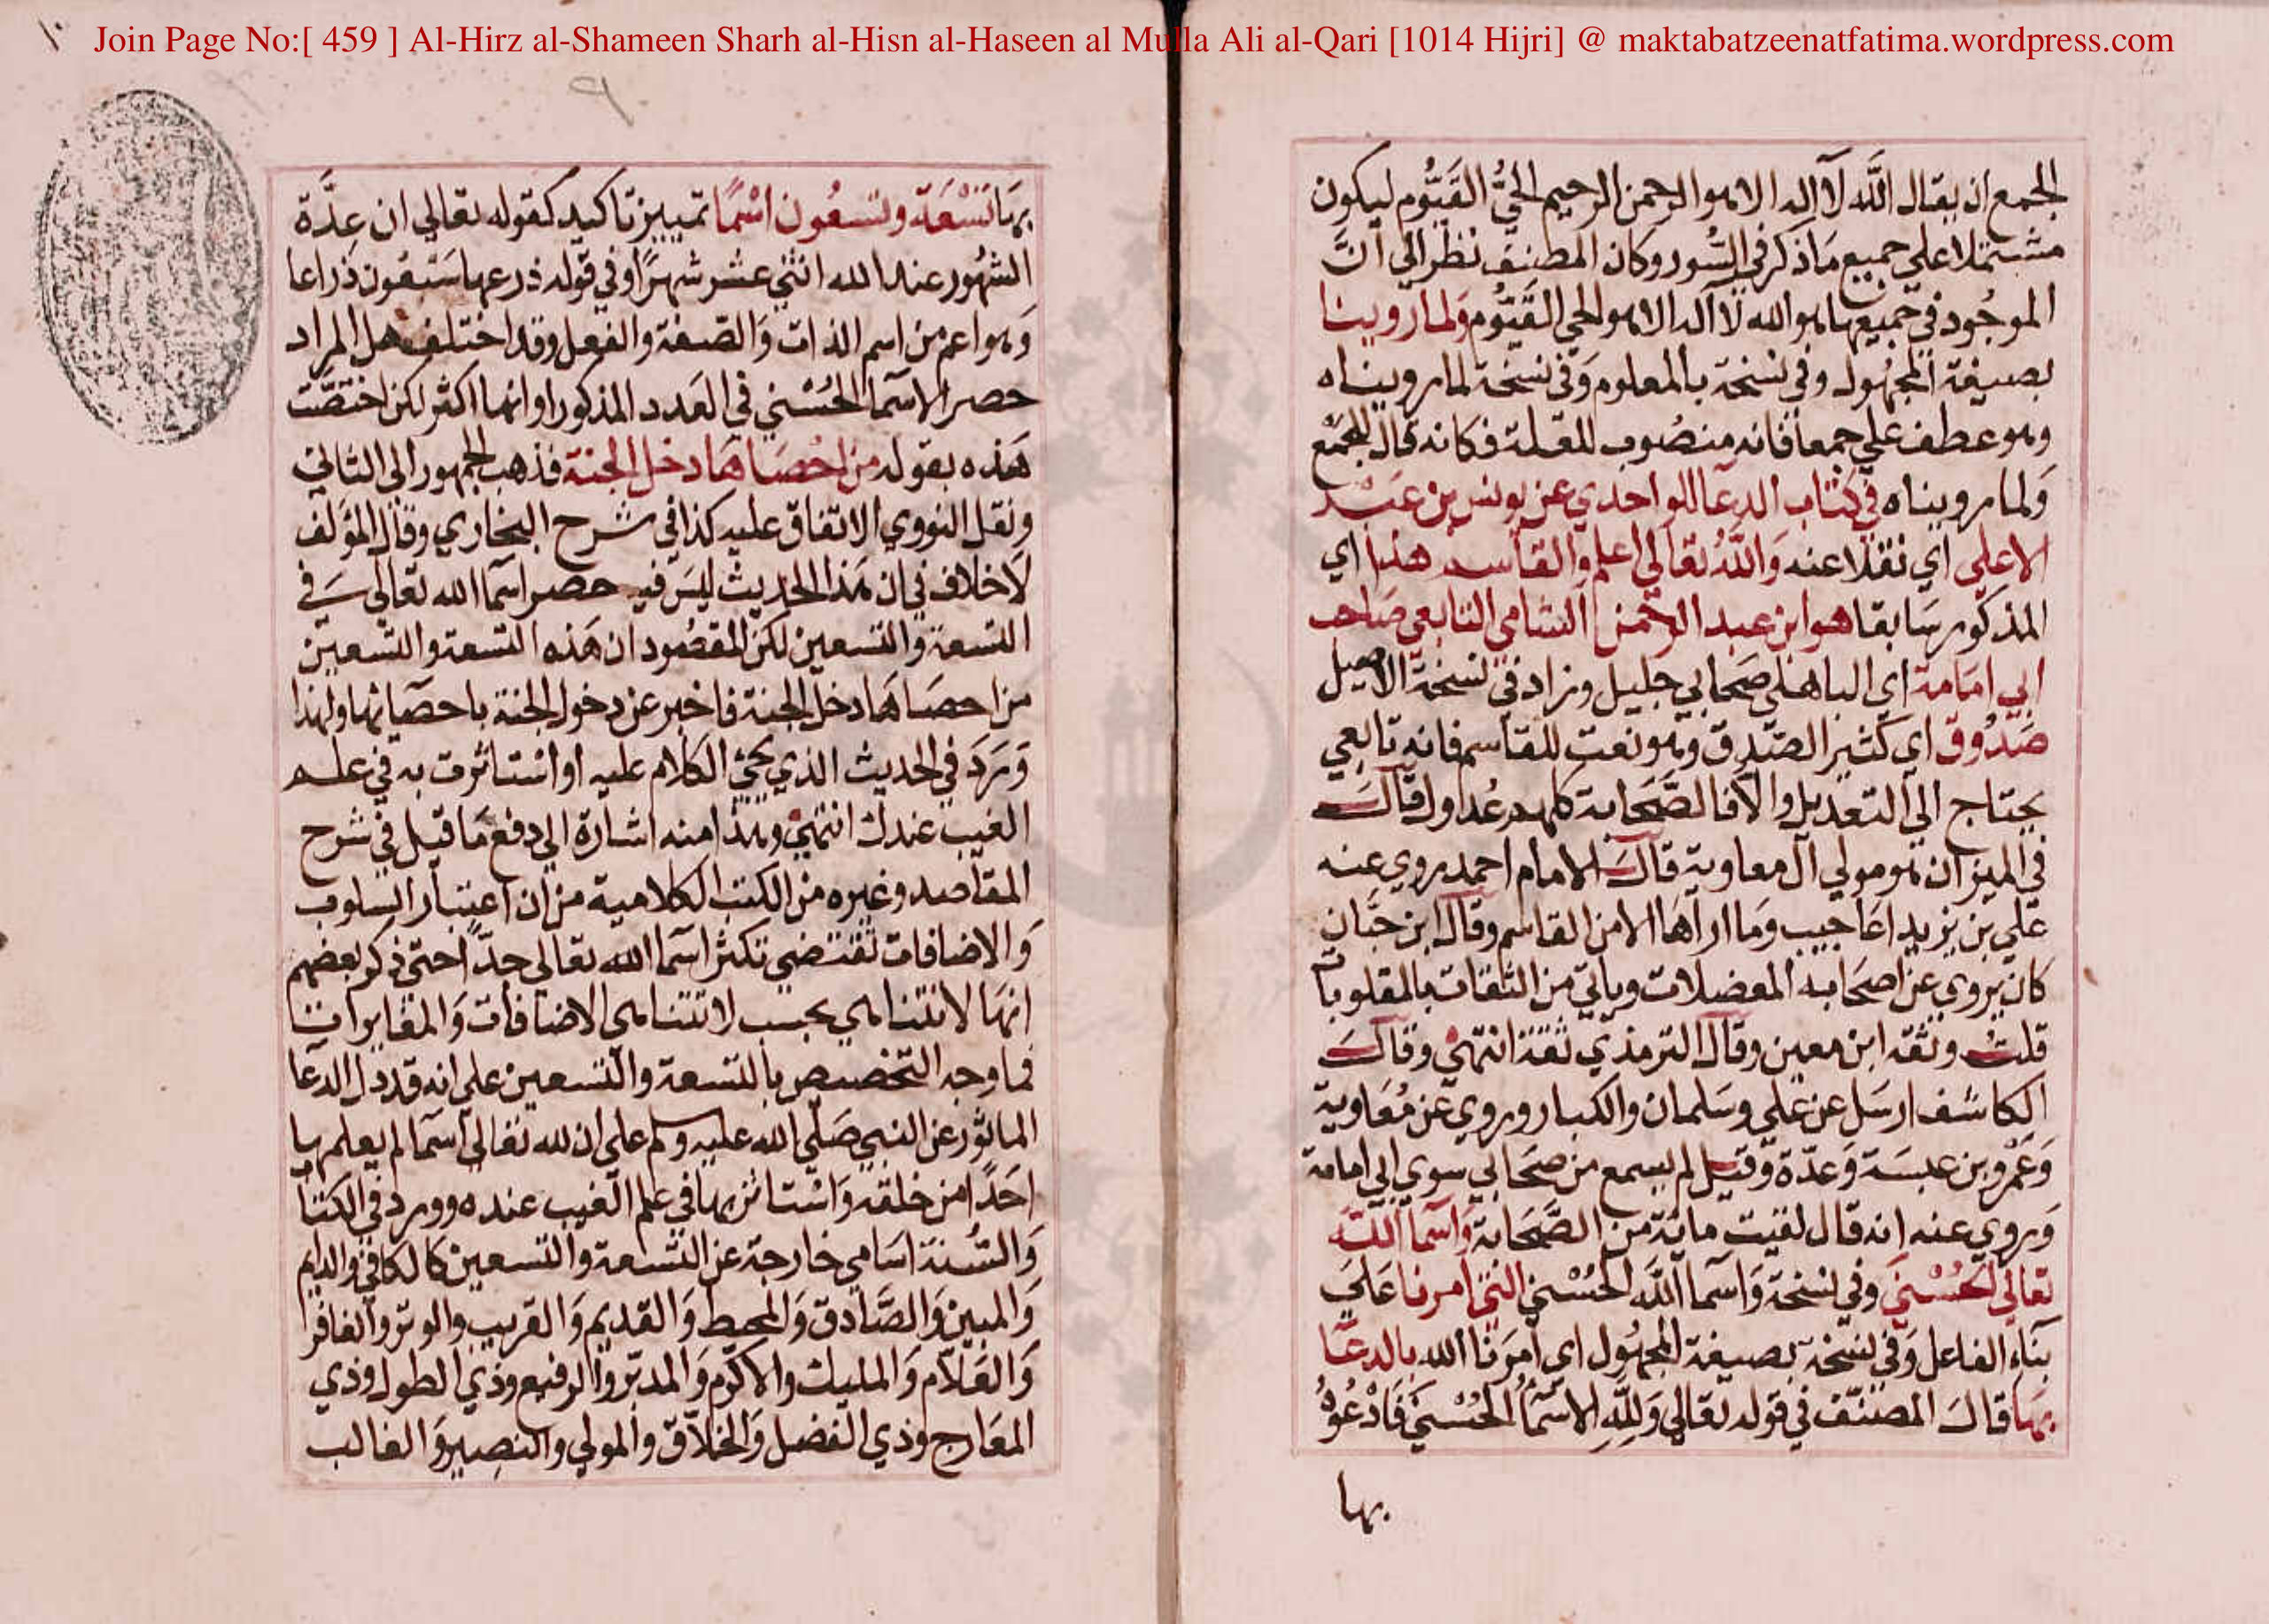 Join Page No:[ 459 ] Al-Hirz al-Shameen Sharh al-Hisn al-Haseen al Mulla Ali al-Qari [1014 Hijri] @ maktabatzeenatfatima.wordpress.com
الجمع ان يقال اللَّه لا اله الا هو الرحمن الرحيم الحيُّ القَيُّوم ليكون
مشتملا على جميع مَا ذكر في السُّور وكان المصنف نظر الى انَّ
الموجُود في جميعها هو الله لا اله الا هو الحي القَيُّوم وَلما روينا
بصيغة المجهُول وفي نسخة بالمعلوم وَفي نسخة لما رويناه
وهو عطف على جمعا فانه منصُوب للعلة فكانه قال للجَمْع
وَلما رويناه في كتاب الدعا للواحدي عن يونس بن عَبْد
الاعلى اي نقلا عنه وَاللَّهُ تعَالى اعلم والقاسم هذا اي
المذكور سَابقا هو ابن عبد الرحمن الشامي التابعي صَاحب
ابي امَامة اي الباهلي صَحابي جليل وزاد في نسخة الاصيل
صَدُوق اي كثير الصّدق وهو نعت للقاسم فانه تابعي
يحتاج الى التعديل والا فالصَّحَابة كلهم عُدول وقالَ
في الميزان هو مولي آل معاوية قالَ الامام احمد روي عنه
علي بن يزيد اعَاجيب وَما اراهَا الا من القاسم وقال ابن حبَّان
كان يروي عن اصحَابه المعضلات وياتي من الثقات بالمقلوبات
قلتُ وثقه ابن معين وقال الترمذي ثقة انتهى وقالَ
الكاشف ارسَل عن علي وسَلمان والكبار وروي عن مُعَاوية
وَعَمْرو بن عبسَة وَعدّة وَقيل لم يسمع من صحَابي سوي ابي امامة
وَروي عنه انه قال لقيت مائة من الصَّحَابة وَاسَما اللَّه
تعَالى الحُسْنى وفي نسخة وَاسما اللَّه الحُسْنى التي امرنا عَلى
بنَاء الفاعل وَفي نسخة بصيغة المجهُول اي اُمرَنا الله بالدعَا
بهَا قالَ المصَنّف في قوله تعَالى وَلِلَّهِ الاسْمَاُ الحُسْنى فَادْعُوهُ
بها
بهَا تسْعَة وتسعُون اسْمًا تمييز تاكيد كقوله تعالى ان عِدَّة
الشهُور عند الله اثني عشر شهرًا وفي قوله ذرعها سَبعُون ذراعا
وَهو اعم من اسم الذات وَالصّفة والفعل وقد اختلف هل المراد
حصر الاسَما الحُسْنى في العَدد المذكور او انها اكثر لكن اختصّت
هَذه بقوله من احْصَاهَا دخل الجنة فذهب الجمهور الى الثاني
ونقل النووي الاتفاق عليه كذا في شرح البخاري وقال المؤلف
لاخلاف في ان هَذا الحديث ليسَ فيه حصر اسَما الله تعَالى في
التسعة وَالتسعين لكن المقصُود ان هَذه التسعة والتسعين
من احصَاهَا دخل الجنة فاخبر عن دخول الجنة باحصَائها ولهذا
وَرَدَ في الحديث الذي يجئ الكلام عليه او اسْتاثرت به في علم
الغيب عندك انتهى وهذا منه اشارة الى دفع مَا قيل في شرح
المقاصد وغيره من الكتب الكلامية من ان اعتبار السلوب
وَالاضافات تقتضي تكثر اسَما الله تعالى جدّا حتى ذكر بعضهم
انهَا لا تتناهي بحسب لا تتناهي الاضافات وَالمغايرات
فما وجه التخصيص بالتسعة والتسعين على انه قد دل الدعَا
الماثور عن النبي صَلّى الله عليه وسلم على ان لله تعَالى اسَما لم يعلمها
احَدًا من خلقه وَاسْتاثر بها في علم الغيب عنده وورد في الكتاب
وَالسُّنة اسَامي خارجة عن التسعة والتسعين كالكافي والدايم
وَالمبين وَالصَّادق وَالمحيط وَالقديم وَالقريب والوتر والغافر
وَالعَلاّم وَالمليك والاكرم وَالمدبّر والرفيع وذي الطول وذي
المعَارج وذي الفضل وَالخلاّق والمولي والنصير وَالغالب